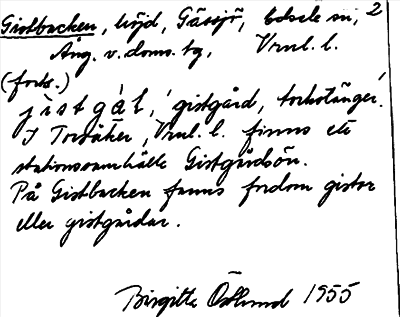 Gistbacken, höjd, Gåssjö, Edsele sn, 2
Ång. v. doms. tg, Vrnl. l.
(forts.)
jistgál, 'gistgård, torkstänger'.
I Torsåker, Vrnl. l. finns ett
stationssamhälle Gistgårdsön.
På Gistbacken fanns fordom gistor
eller gistgårdar.
Birgitta Östlund 1955